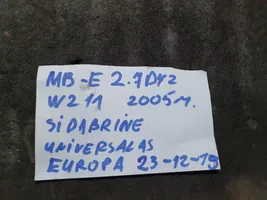 MB-E 2.7Dyz
W211 2005M.
SIDABRINE
UNIVERSALAS
EUROPA 23-12-19